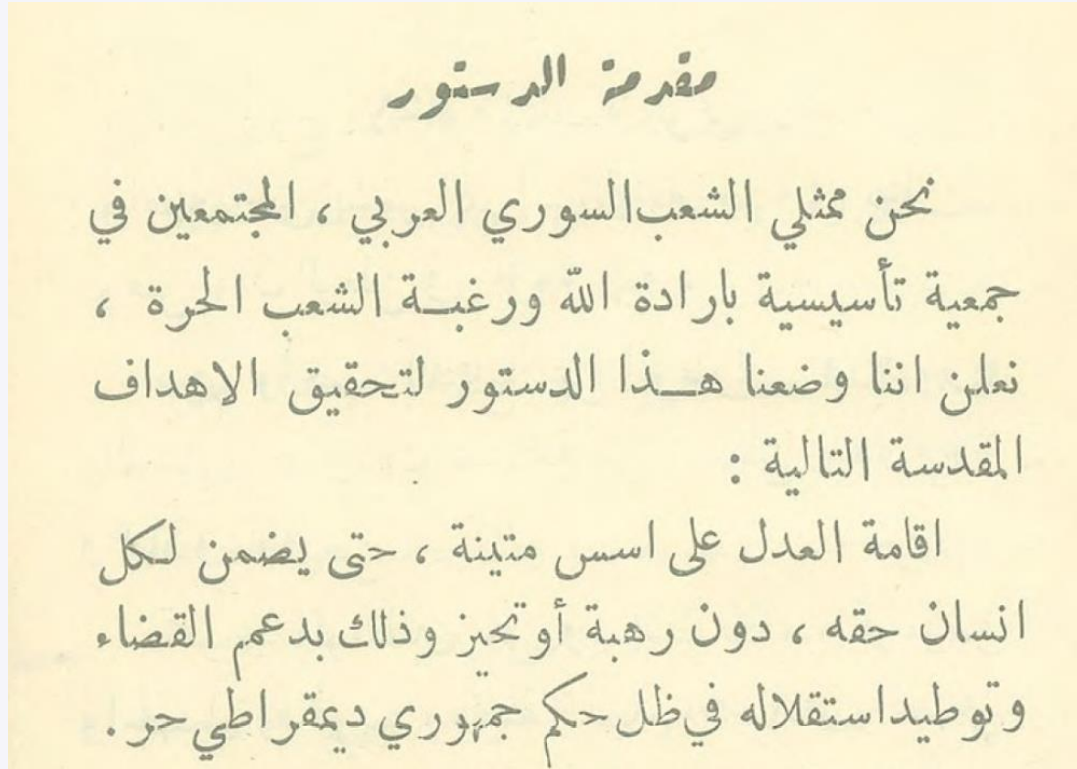 مقدمة الدستور
نحن ممثلي الشعب السوري العربي ، المجتمعين في
جمعية تأسيسية بارادة الله ورغبـة الشعب الحرة ،
نعلن اننا وضعنا هـــذا الدستور لتحقيق الاهداف
المقدسة التالية :
اقامة العدل على اسس متينة ، حتى يضمن لكل
انسان حقه ، دون رهبة أو تحيز وذلك بدعم القضاء
وتوطيد استقلاله في ظل حكم جمهوري ديمقراطي حر .